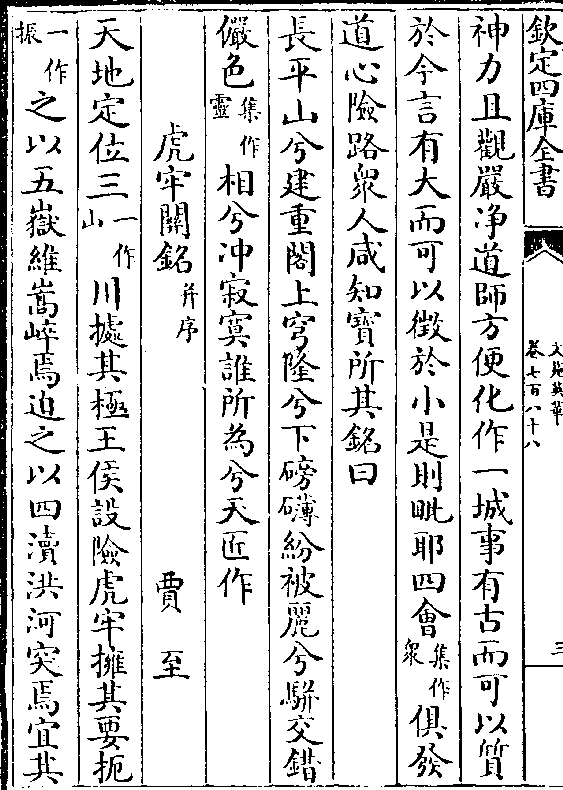 欽定四庫全書
文苑英華
卷七百八十八
三
神力且觀嚴净道師方便化作一城事有古而可以質
於今言有大而可以徵於小是則毗耶四會集作衆俱發
道心險路衆人咸知寶所其銘曰
長平山兮建重閣上穹隆兮下磅礴紛被麗兮駢交錯
儼色集作靈相兮冲寂寞誰所為兮天匠作
虎牢關銘并序 賈至
天地定位三一作山川據其極王侯設險虎牢擁其要扼
一作振之以五嶽維嵩崒焉迫之以四瀆洪河突焉宜其